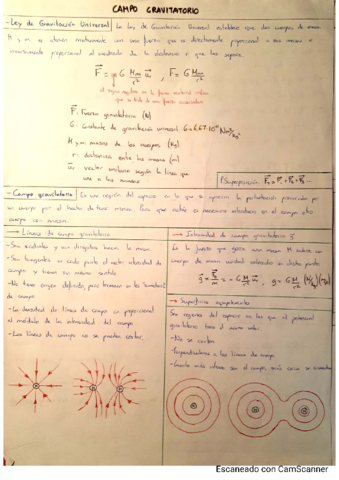 CAMPO GRAVITATORIO
- Ley de Gravitación Universal: La Ley de Gravitación Universal establece que dos cuerpos de masa
M y m se atraen mutuamente con una fuerza que es directamente proporcional a sus masas e
inversamente proporcional al cuadrado de la distancia r que las separa.
F⃗ = -G Mm/r² u⃗r , F = G Mm/r²
el signo negativo en la fuerza vectorial indica
que se trata de una fuerza atractiva
F: Fuerza gravitatoria (N)
G: Constante de gravitación universal G=6,67·10⁻¹¹ Nm²/kg²
M y m: masas de los cuerpos (kg)
r: distancia entre las masas (m)
u⃗: vector unitario según la línea que
une a las masas
P. Superposición F⃗t = F⃗1 + F⃗2 + F⃗3...
- Campo gravitatorio: Es una región del espacio en la que se aprecia la perturbación provocada por
un cuerpo por el hecho de tener masa. Para que actúe es necesario introducir en el campo otro
cuerpo con masa.
→ Líneas de campo gravitatorio
- Son radiales y van dirigidas hacia la masa.
- Son tangentes en cada punto al vector intensidad de
campo y tienen su mismo sentido
- No tienen origen definido, pero terminan en los "sumideros"
de campo.
- La densidad de líneas de campo es proporcional
al módulo de la intensidad del campo.
- Las líneas de campo no se pueden cortar.
→ Intensidad de campo gravitatorio g⃗
Es la fuerza que ejerce una masa M sobre un
cuerpo de masa unidad colocado en dicho punto
g⃗ = F⃗/m = -G M/r² u⃗r , g = G M/r² (N/kg) (m/s²)
→ Superficies equipotenciales
Son regiones del espacio en las que el potencial
gravitatorio tiene el mismo valor.
- No se cortan
- Perpendiculares a las líneas de campo
Escaneado con CamScanner